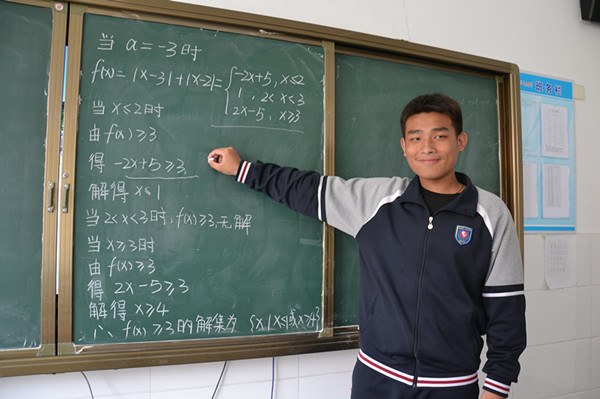 当 a=-3时
f(x)=|x-3|+|x-2|= { -2x+5, x≤2
1, 2<x<3
2x-5, x≥3
当 x≤2时
由 f(x)≥3
得 -2x+5≥3
解得 x≤1
当2<x<3时, f(x)≥3, 无解
当 x≥3时
由 f(x)≥3
得 2x-5≥3
解得 x≥4
∴ f(x)≥3的解集为 {x|x≤1或x≥4}
班务栏